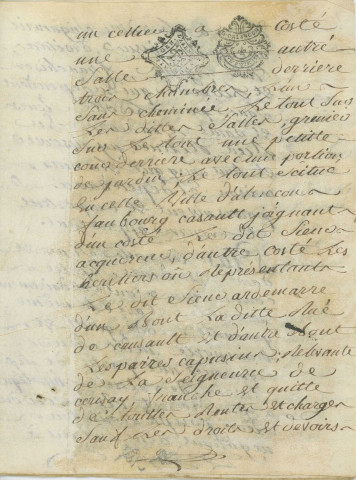 un cellier a costé
une autre
Salle derriere
trois chambres, dun a
Sans cheminée Le tout Sur
Les dittes Salles, greniers
Sur Le tout une petitte
cour derriere avec une portion
de jardin; Le tout scitué
En cette Ville d'alencon
faubourg casault joignant
d'un costé Le dit Sieur
acquereur, d'autre costé Les
heritiers ou Representants
Le dit Sieur ardemarre
d'un bout La ditte Rué
de casault et d'autre bout
Les parres capucins, Relevante
de La Seigneurie de
cerisay, franche et quitte
de touttes Rentes et charges
Sauf Les droits et devoirs